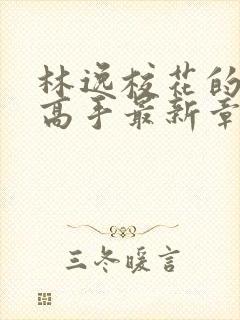 林逸校花的
高手最新章
三冬暖言